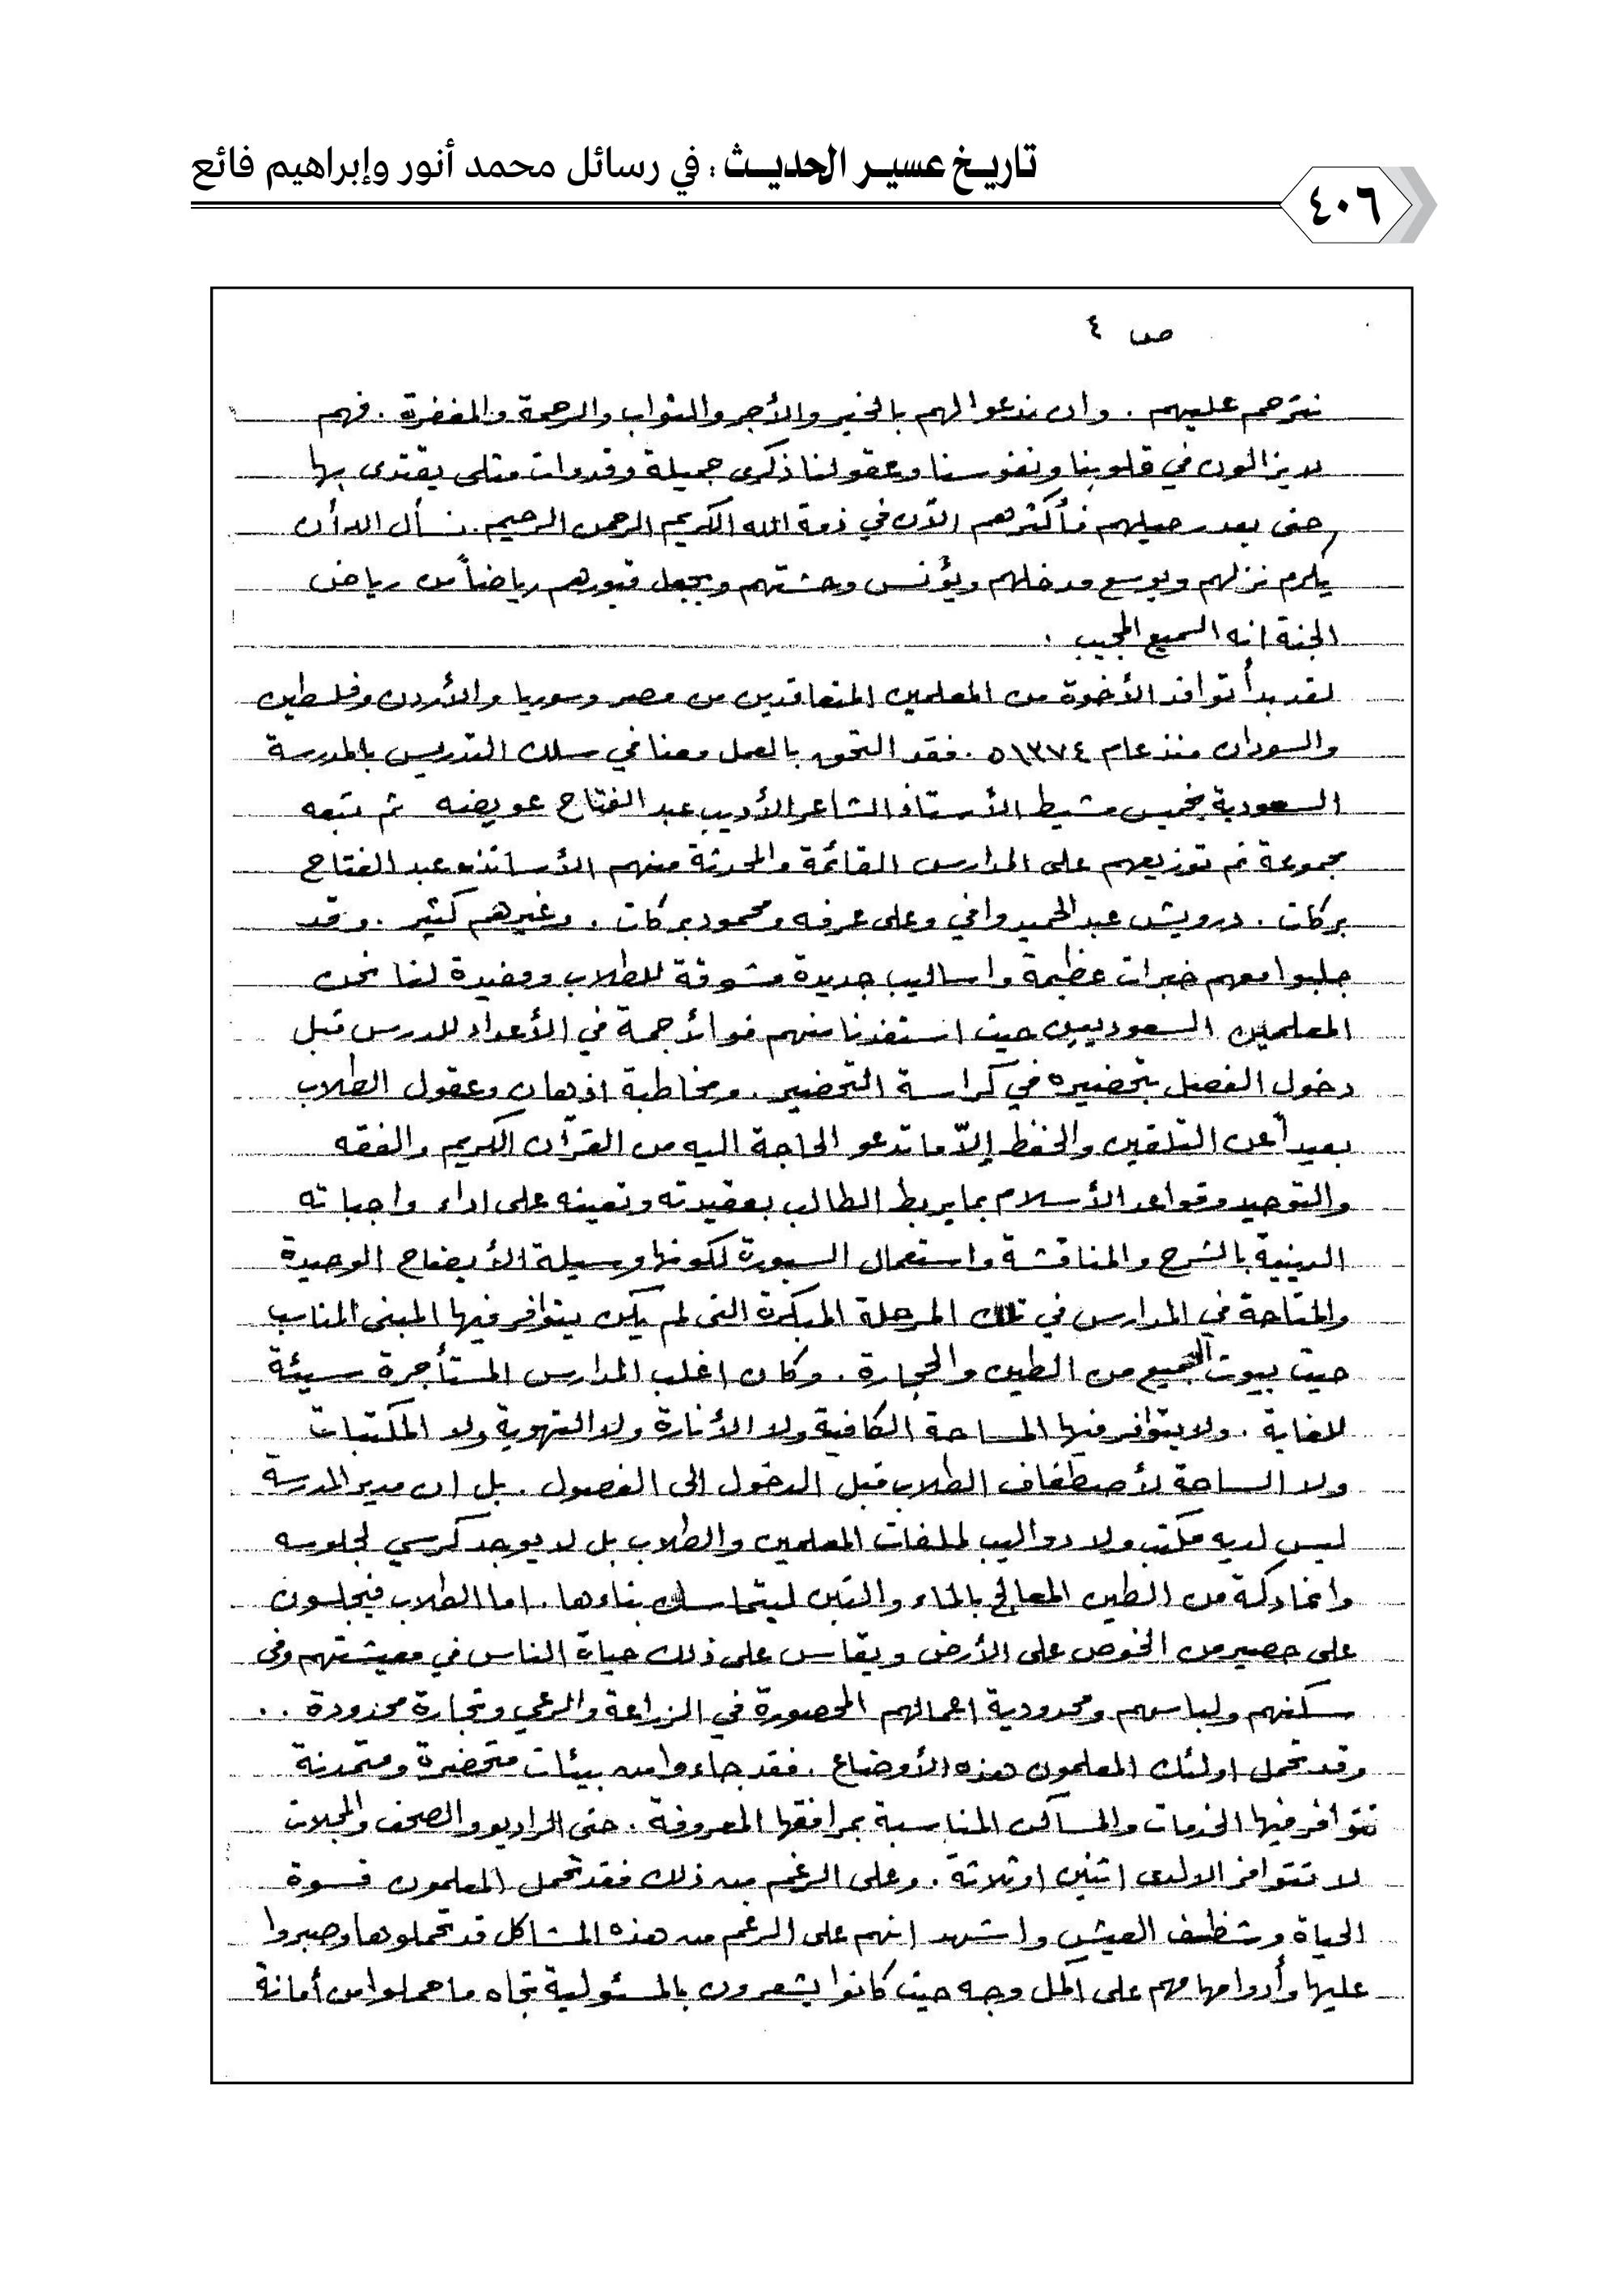 تاريخ عسير الحديث : في رسائل محمد أنور وإبراهيم فائع
٤٠٦
ص ٤
نترحم عليهم . وان ندعوا لهم بالخير والأجر والثواب والرحمة والمغفرة . فهم
لا يزالون في قلوبنا ونفوسنا وعقولنا ذكرى جميلة وقدوات مثلى يقتدى بها
حتى بعد رحيلهم فأكثرهم الآن في ذمة الله الكريم الرحمن الرحيم . نسأل الله أن
يكرم نزلهم ويوسع مدخلهم ويؤنس وحشتهم ويجعل قبورهم رياضاً من رياض
الجنة انه السميع المجيب .
لقد بدأ توافد الأخوة من المعلمين المتعاقدين من مصر وسوريا والأردن وفلسطين
والسودان منذ عام ١٣٧٤ه . فقد التحق بالعمل معنا في سلك التدريس بالمدرسة
السعودية بخميس مشيط الأستاذ الشاعر الأديب عبد الفتاح عويضه ثم تبعه
مجموعة تم توزيعهم على المدارس القائمة والمحدثة منهم الأساتذه عبد الفتاح
بركات . درويش عبد الحميد وافي وعلى عرفه ومحمود بركات . وغيرهم كثير . وقد
جلبوا معهم خبرات عظيمة واساليب جديدة مشوقة للطلاب ومفيدة لنا نحن
المعلمين السعوديين حيث استفدنا منهم فوائد جمة في الأعداد للدرس قبل
دخول الفصل بتحضيره في كراسة التحضير . ومخاطبة اذهان وعقول الطلاب
بعيداً عن التلقين والحفظ إلاّ ما تدعو الحاجة اليه من القرآن الكريم والفقه
والتوحيد وقواعد الأسلام بما يربط الطالب بعقيدته وتعينه على اداء واجباته
الدينية بالشرح والمناقشة واستعمال السبورة لكونها وسيلة الأيضاح الوحيدة
والمتاحة في المدارس في تلك المرحلة المبكرة التى لم يكن يتوافر فيها المبنى المناسب
حيث بيوت الجميع من الطين والحجارة . وكان اغلب المدارس المستأجرة سيئة
للغاية . ولا يتوافر فيها المساحة الكافية ولا الأنارة ولا التهوية ولا المكتبات
ولا الساحة لأصطفاف الطلاب قبل الدخول الى الفصول . بل ان مدير المدرسة
ليس لديه مكتب ولا دواليب لملفات المعلمين والطلاب بل لا يوجد كرسي لجلوسه
وانما دكة من الطين المعالج بالماء والتبن ليتماسك بناءوها . اما الطلاب فيجلسون
على حصير من الخوص على الأرض ويقاس على ذلك حياة الناس في معيشتهم وفى
سكنهم ولباسهم ومحدودية اعمالهم المحصورة في الزراعة والرعي وتجارة محدودة . .
وقد تحمل اولئك المعلمون هذه الأوضاع . فقد جاءوا من بيئات متحضرة ومتمدنة
تتوافر فيها الخدمات والمساكن المناسبة بمرافقها المعروفة . حتى الراديو والصحف والمجلات
لا تتوافر الا لدى اثنين او ثلاثة . وعلى الرغم من ذلك فقد تحمل المعلمون قسوة
الحياة وشظف العيش واشهد انهم على الرغم من هذه المشاكل قد تحملوها وصبروا
عليها وأدوا مهامهم على اكمل وجه حيث كانوا يشعرون بالمسئولية تجاه ما حملوا من أمانة